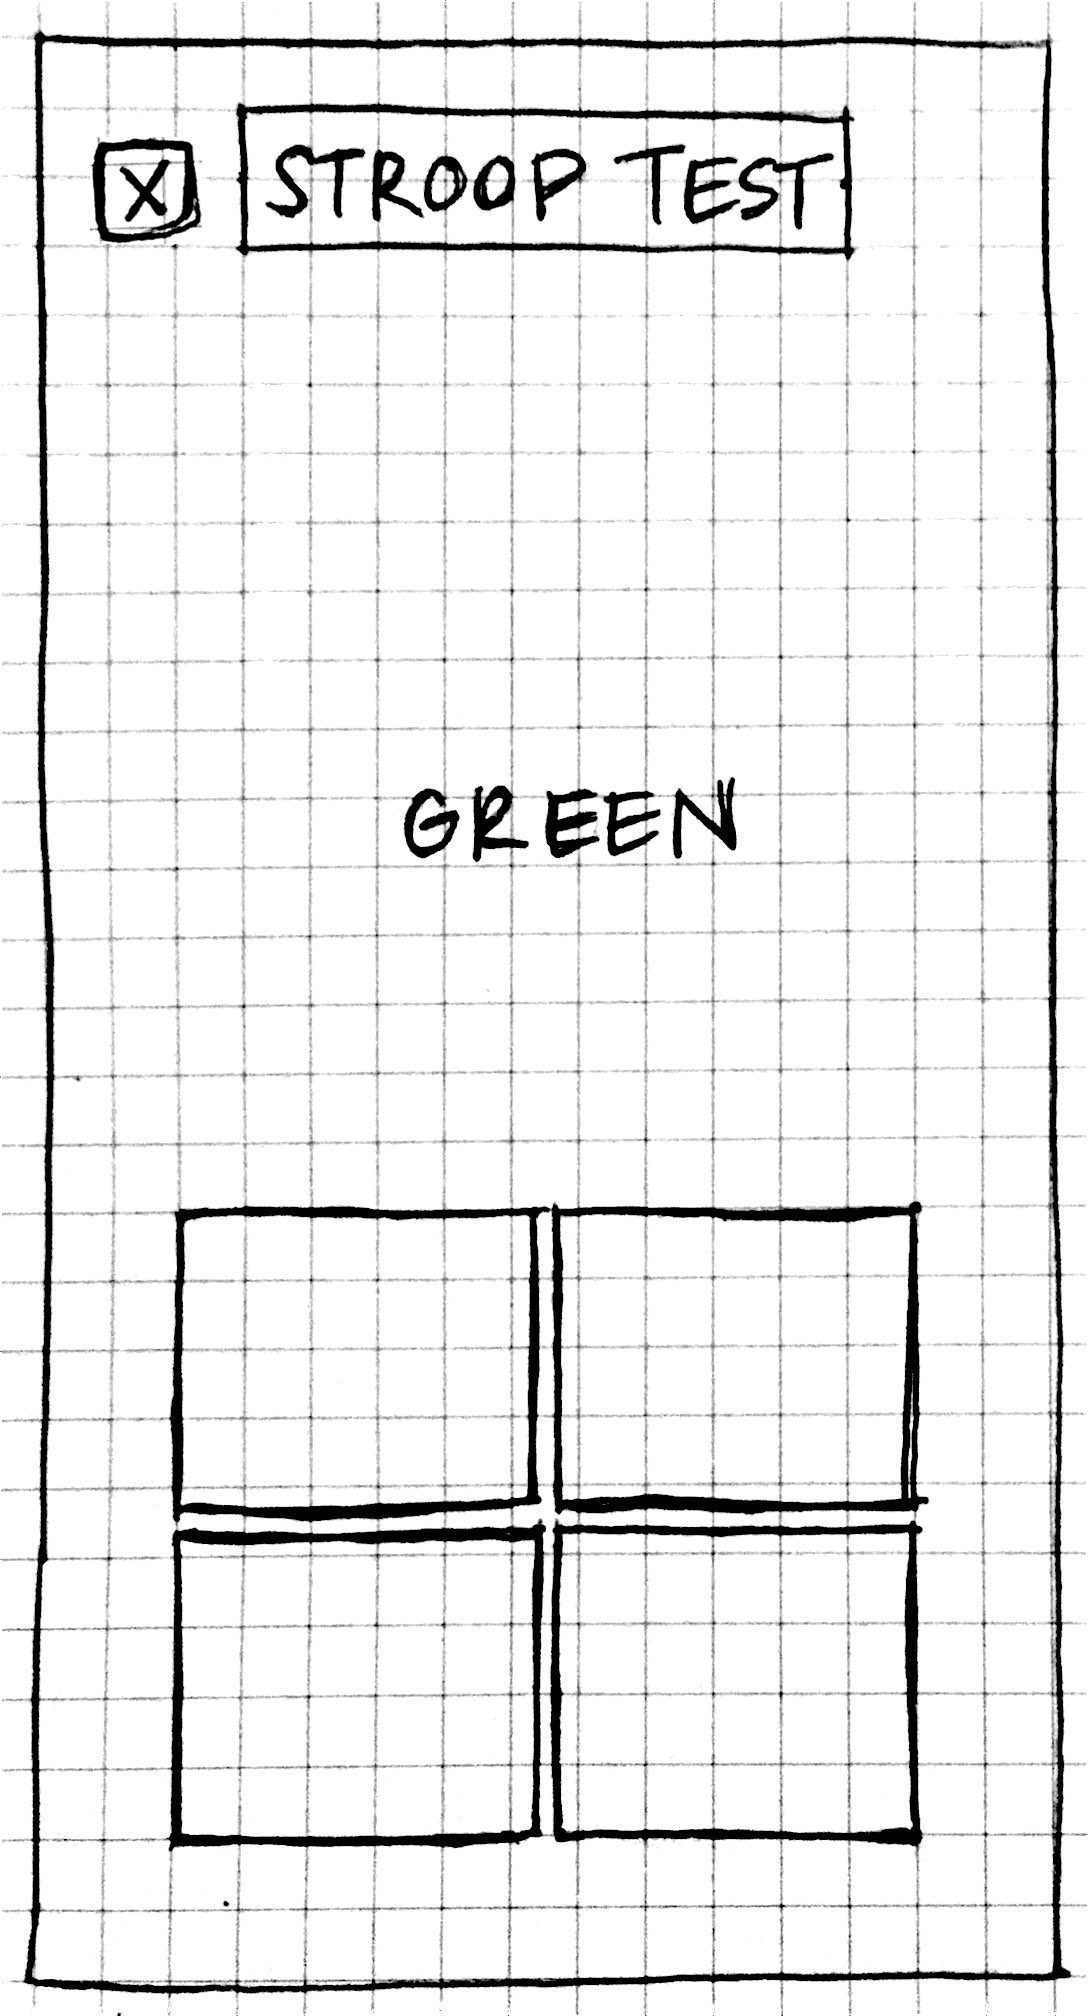 X
STROOP TEST
GREEN